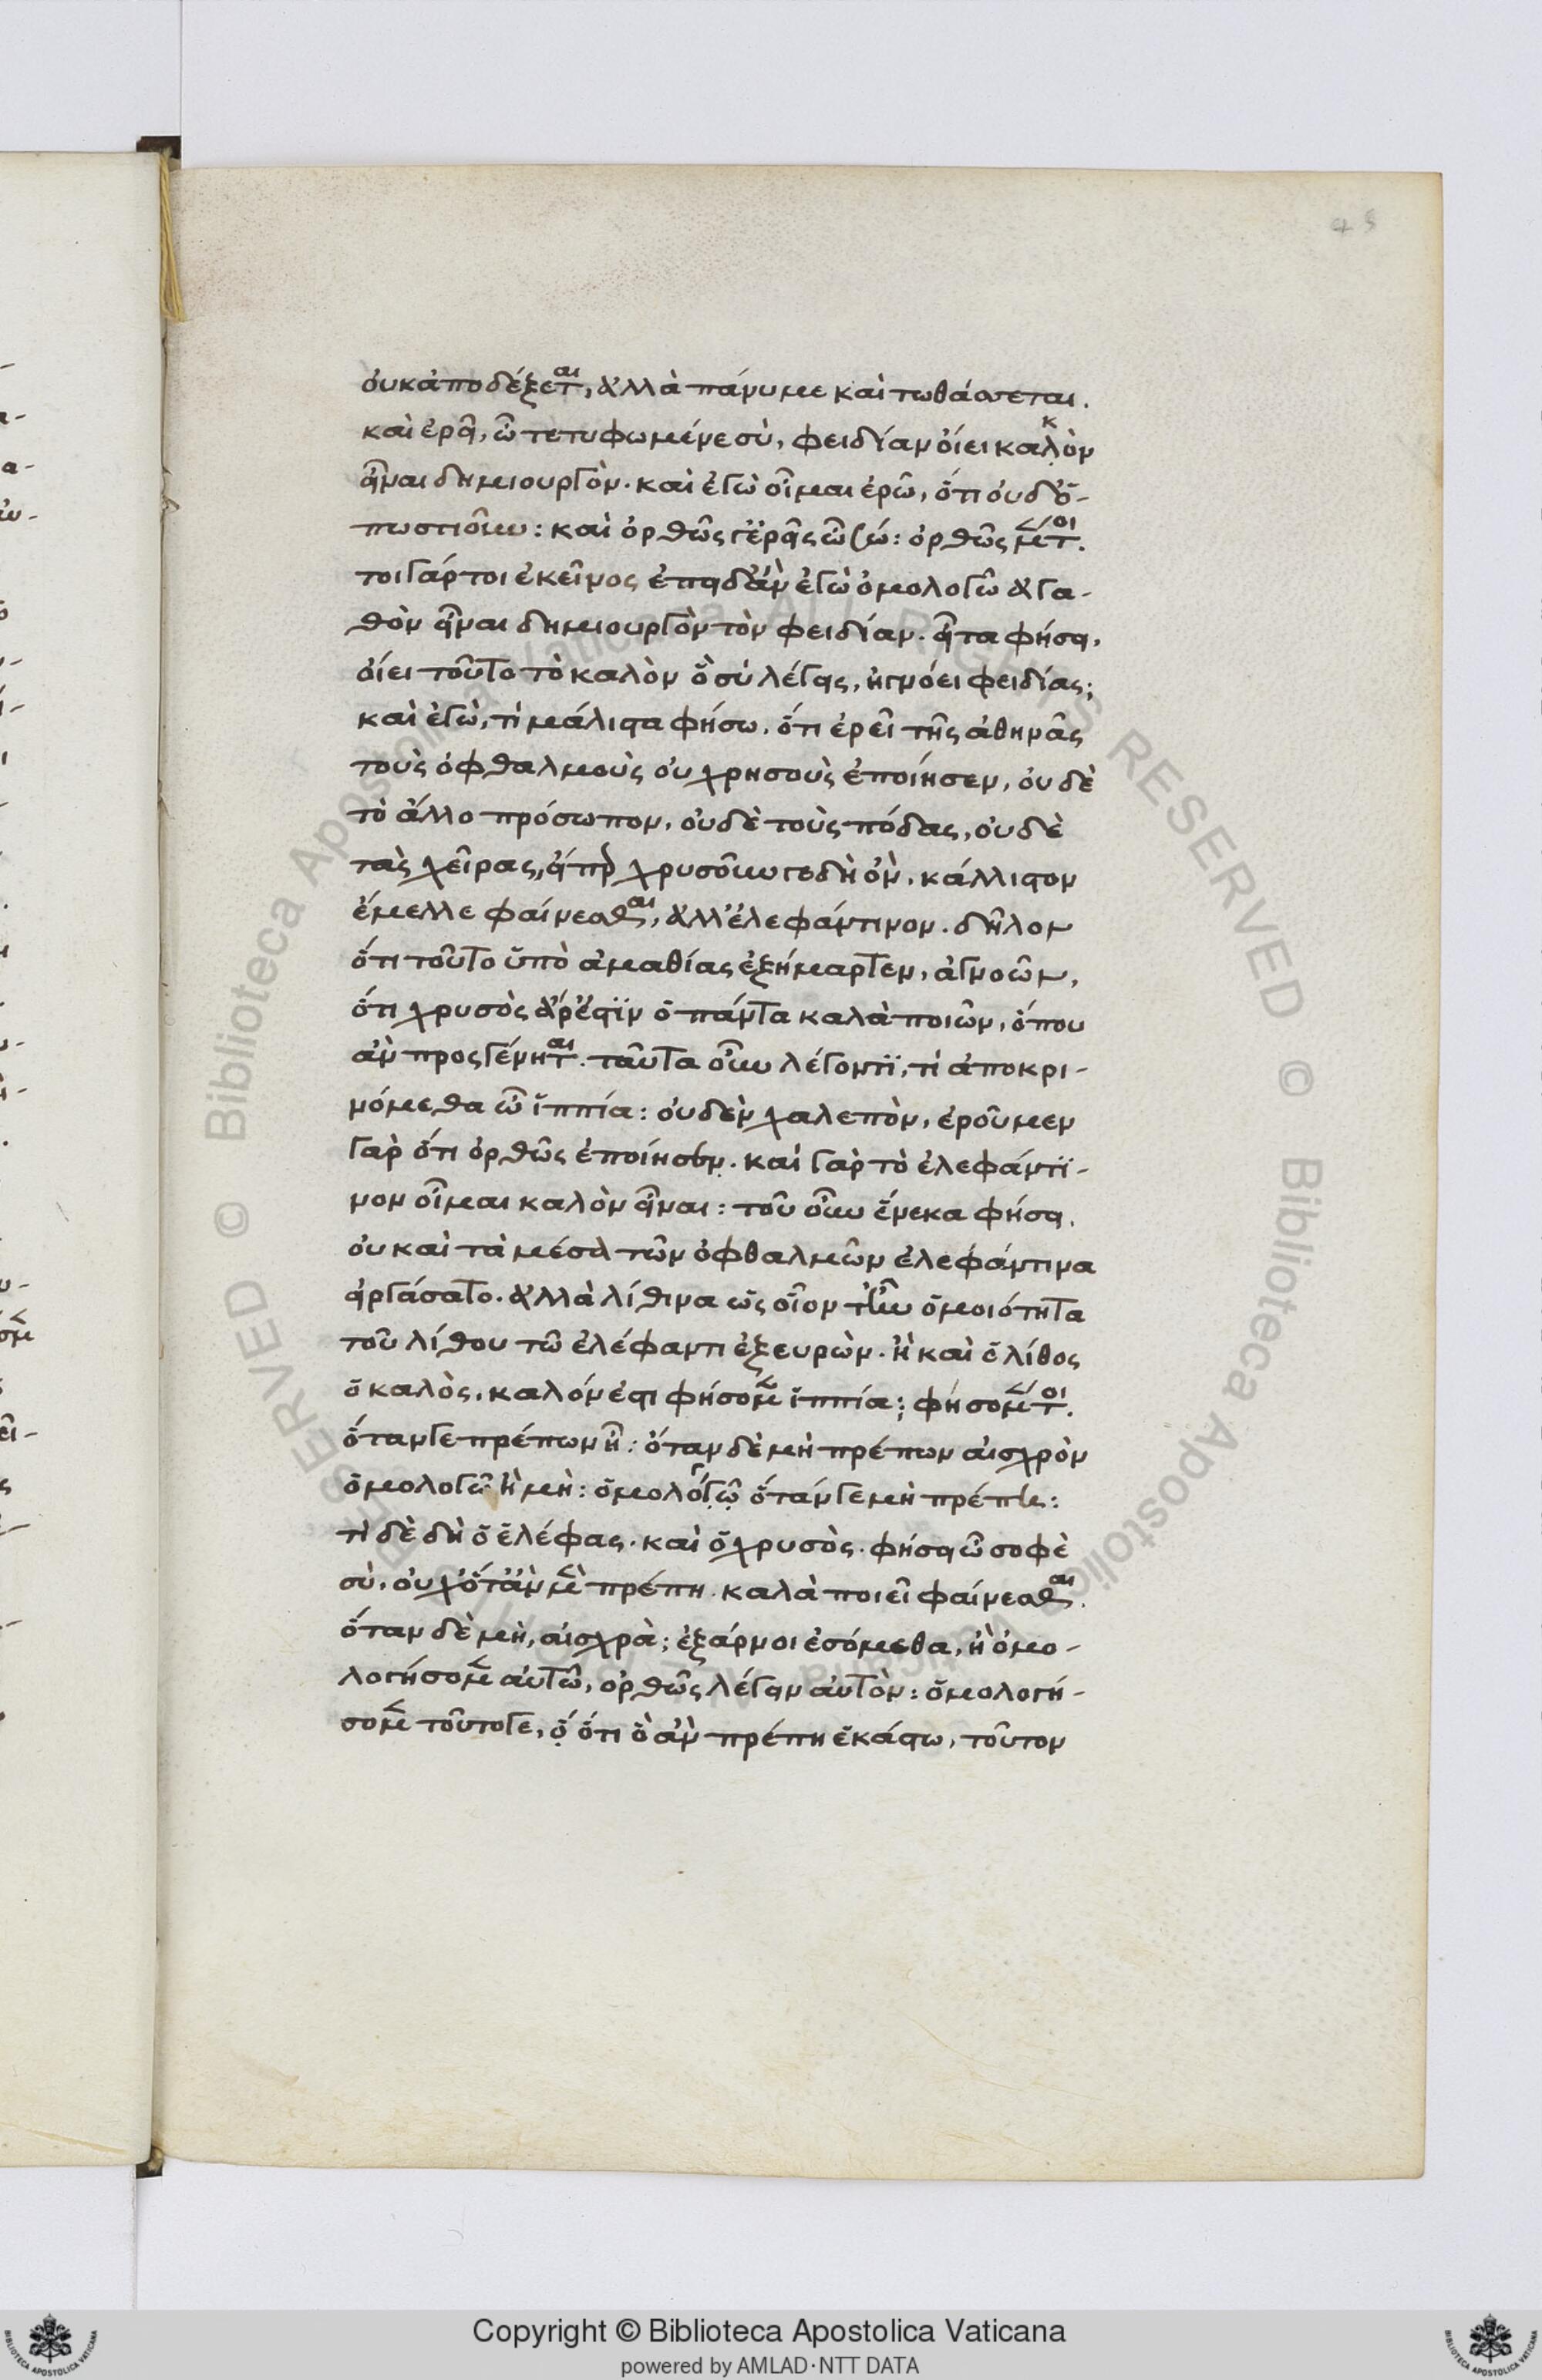 οὐκ ἀποδέξεται, ἀλλὰ πάνυ με καὶ τωθάσεται.
καὶ ἐρεῖ, ὦ τετυφωμένε σὺ, φειδίαν οἴει καλὸν
εἶναι δημιουργὸν. καὶ ἐγὼ οἶμαι ἐρῶ, ὅτι οὐδ' ὁ-
πωστιοῦν: καὶ ὀρθῶς γ' ἐρεῖς ὦ σώ: ὀρθῶς μέντοι.
τοιγάρτοι ἐκεῖνος ἐπειδὰν ἐγὼ ὁμολογῶ ἀγα-
θὸν εἶναι δημιουργὸν τὸν φειδίαν. εἶτα φήσει,
οἴει τοῦτο τὸ καλὸν ὃ σὺ λέγεις, ἠγνόει φειδίας;
καὶ ἐγὼ, τί μάλιστα φήσω. ὅτι ἐρεῖ τῆς ἀθηνᾶς
τοὺς ὀφθαλμοὺς οὐ χρησοὺς ἐποίησεν, οὐδὲ
τὸ ἄλλο πρόσωπον, οὐδὲ τοὺς πόδας, οὐδὲ
τὰς χεῖρας, εἴπερ χρυσοῦν γε δὴ ὂν, κάλλιστον
ἔμελλε φαίνεσθαι, ἀλλ' ἐλεφάντινον. δῆλον
ὅτι τοῦτο ὑπὸ ἀμαθίας ἐξήμαρτεν, ἀγνοῶν,
ὅτι χρυσὸς ἄρ' ἐστὶν ὁ πάντα καλὰ ποιῶν, ὅπου
ἂν προςγένηται. ταῦτα οὖν λέγοντι, τί ἀποκρι-
νόμεθα ὦ ἱππία: οὐδὲν χαλεπὸν, ἐροῦμεν
γὰρ ὅτι ὀρθῶς ἐποίησεν. καὶ γὰρ τὸ ἐλεφάντι-
νον οἶμαι καλὸν εἶναι: τοῦ οὖν ἕνεκα φήσει.
οὐ καὶ τὰ μέσα τῶν ὀφθαλμῶν ἐλεφάντινα
εἰργάσατο. ἀλλὰ λίθινα ὡς οἷον τ' ἦν ὁμοιότητα
τοῦ λίθου τῶ ἐλέφαντι ἐξευρὼν. ἢ καὶ ὁ λίθος
ὁ καλὸς, καλόν ἐστι φήσομεν ἱππία; φήσομεν μέντοι.
ὅταν γε πρέπων ἦ: ὅταν δὲ μὴ πρέπων αἰσχρὸν
ὁμολογῶ ἢ μὴ: ὁμολόγω ὅταν γε μὴ πρέπη:
τί δὲ δὴ ὁ ἐλέφας. καὶ ὁ χρυσὸς. φήσει ὦ σοφὲ
σὺ, οὐχ ὅταν μὲν πρέπη. καλὰ ποιεῖ φαίνεσθαι.
ὅταν δὲ μὴ, αἰσχρὰ; ἐξάρνοι ἐσόμεθα, ἢ ὁμο-
λογήσομεν αὐτῶ, ὀρθῶς λέγειν αὐτὸν: ὁμολογή-
σομεν τοῦτο γε, ὅ ὅτι ὃ ἂν πρέπη ἑκάστω, τοῦτον